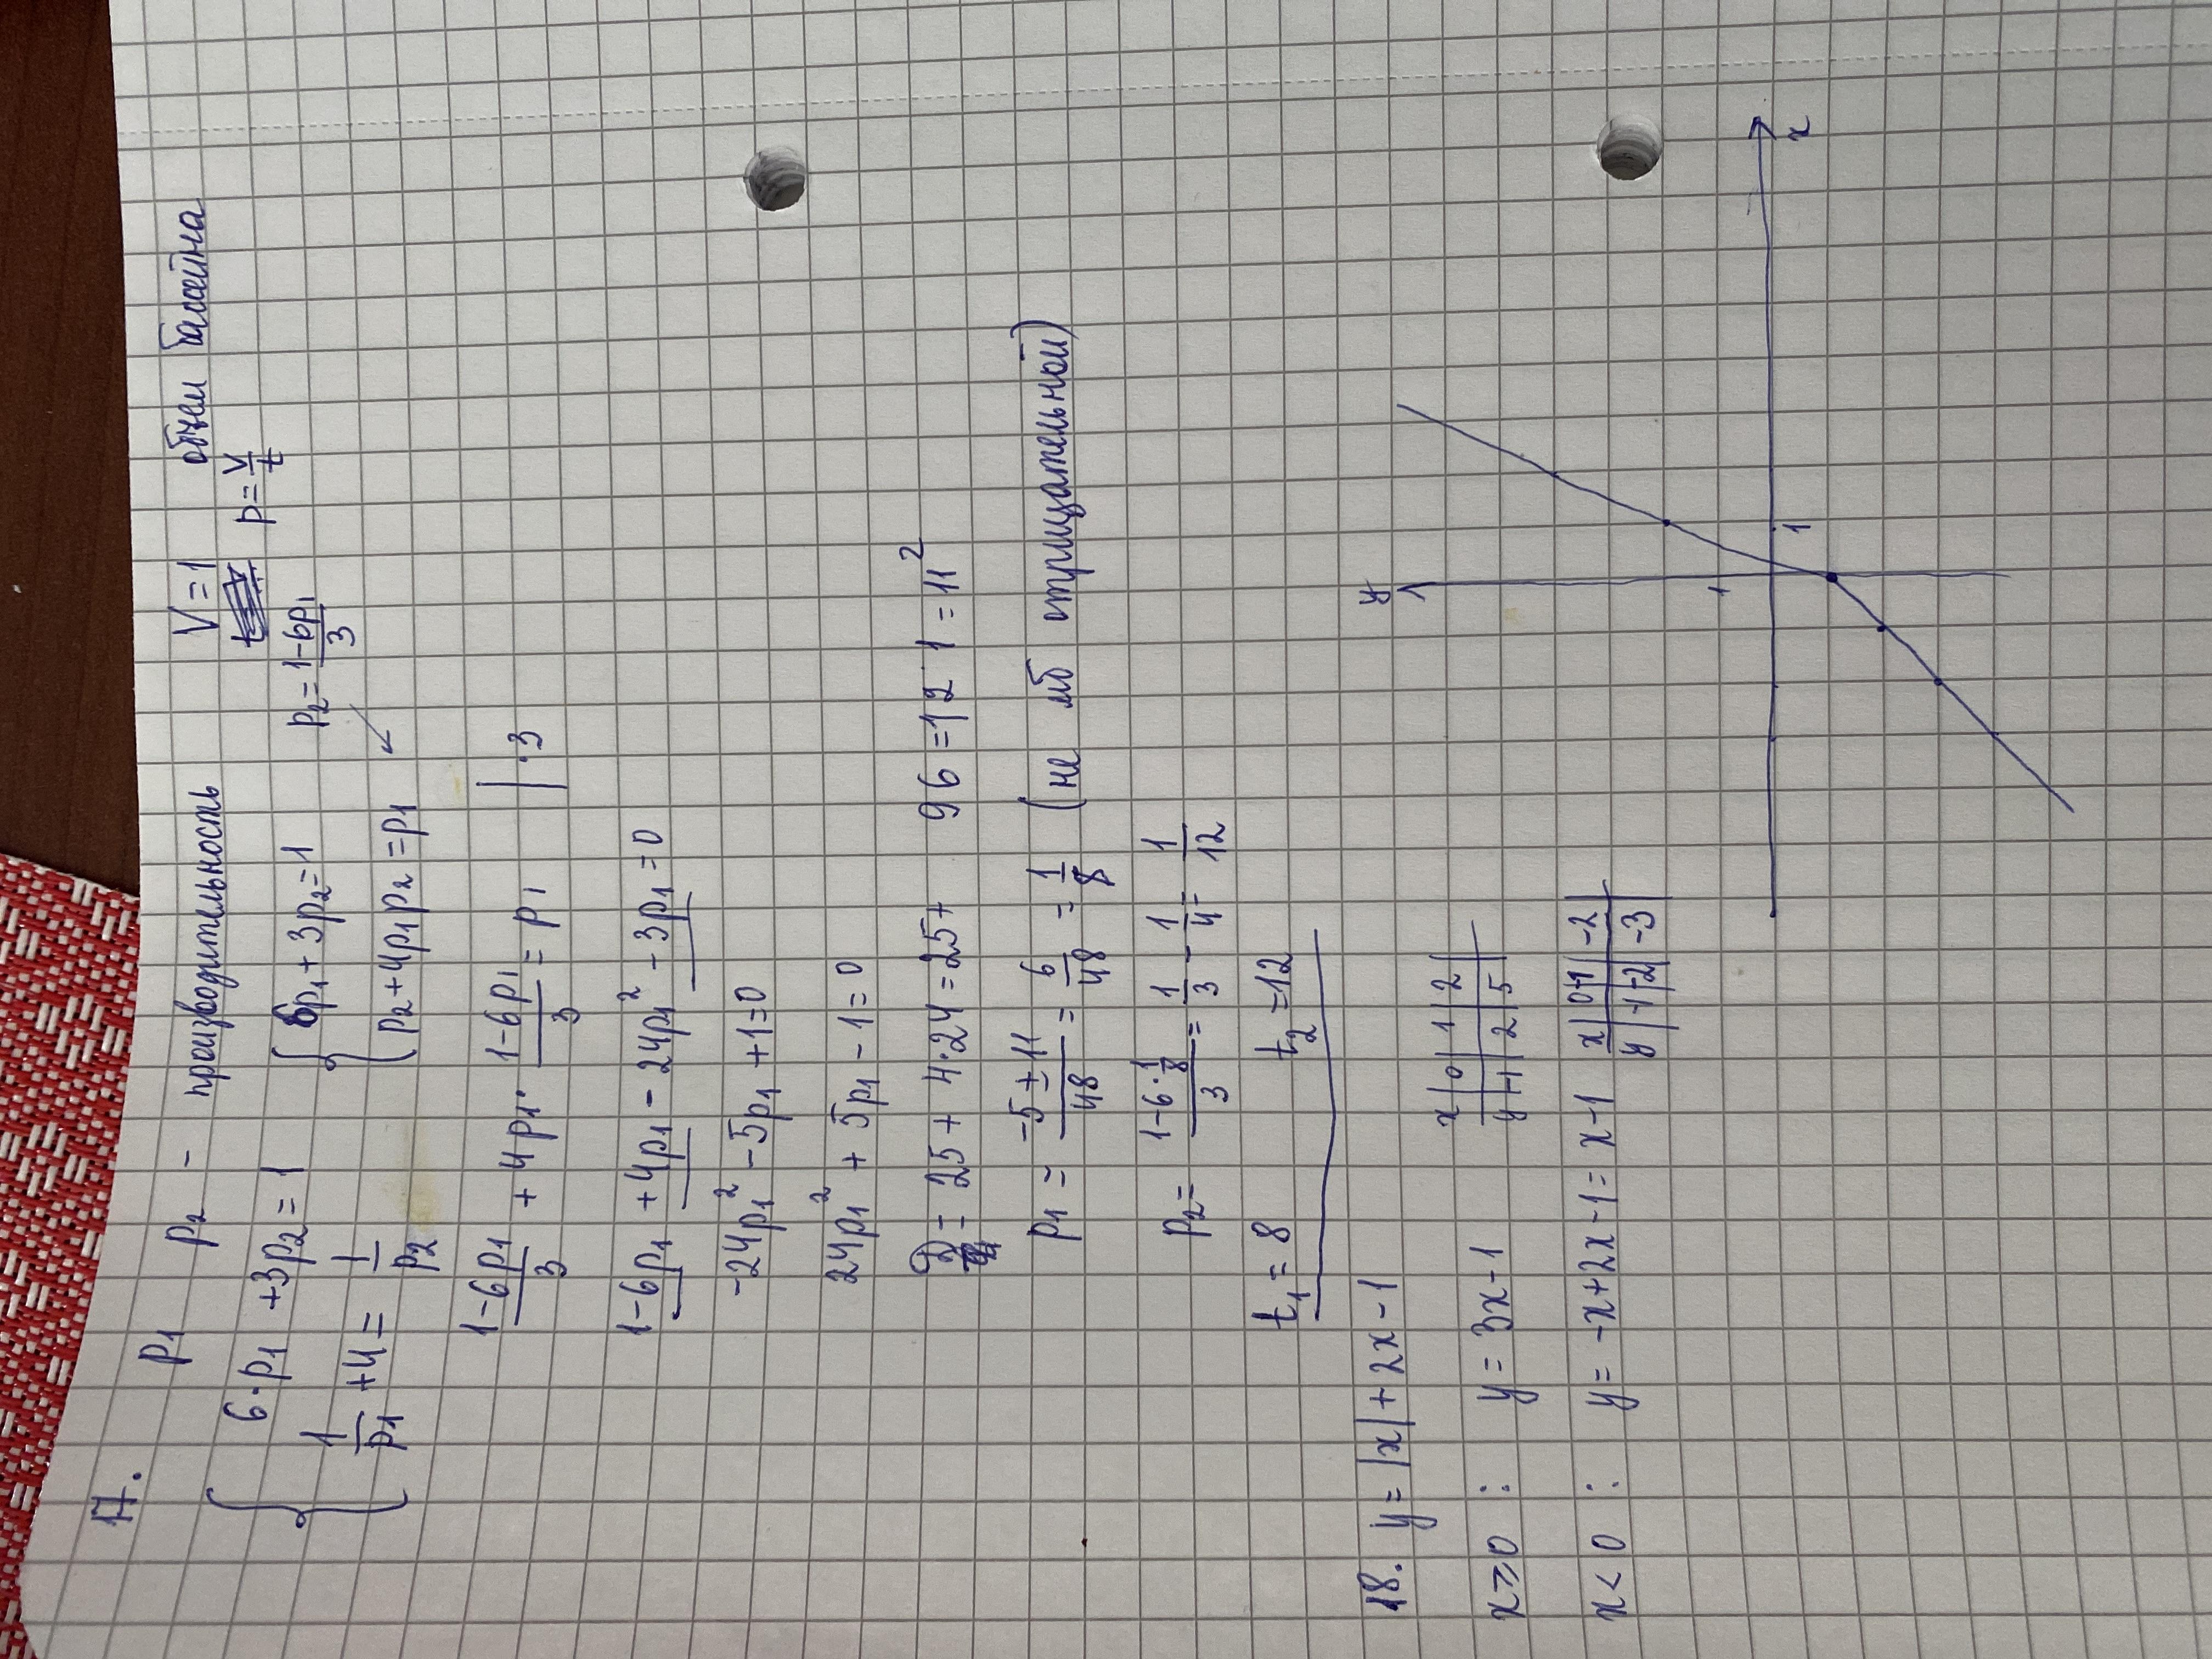 17. p₁ p₂ - производительность V=1 объем бассейна
p=V/t
{ 6·p₁ +3p₂ = 1 { 6p₁+3p₂=1 p₂=(1-6p₁)/3
1/p₁ +4 = 1/p₂ p₂+4p₁p₂=p₁
(1-6p₁)/3 + 4p₁· (1-6p₁)/3 = p₁ |·3
1-6p₁ +4p₁ - 24p₁² - 3p₁=0
-24p₁² -5p₁ +1=0
24p₁² + 5p₁ -1=0
D= 25 + 4·24=25+ 96=121=11²
p₁ = (-5±11)/48 = 6/48 = 1/8 (не мб отрицательной)
p₂= (1-6·1/8)/3 = 1/3 - 1/4 = 1/12
t₁=8 t₂=12
18. y=|x|+2x-1
x⩾0 : y=3x-1
x | 0 | 1 | 2 |
y | -1 | 2 | 5 |
x<0 : y= -x+2x-1=x-1
x | 0 | -1 | -2 |
y | -1 | -2 | -3 |
y
1
1
x